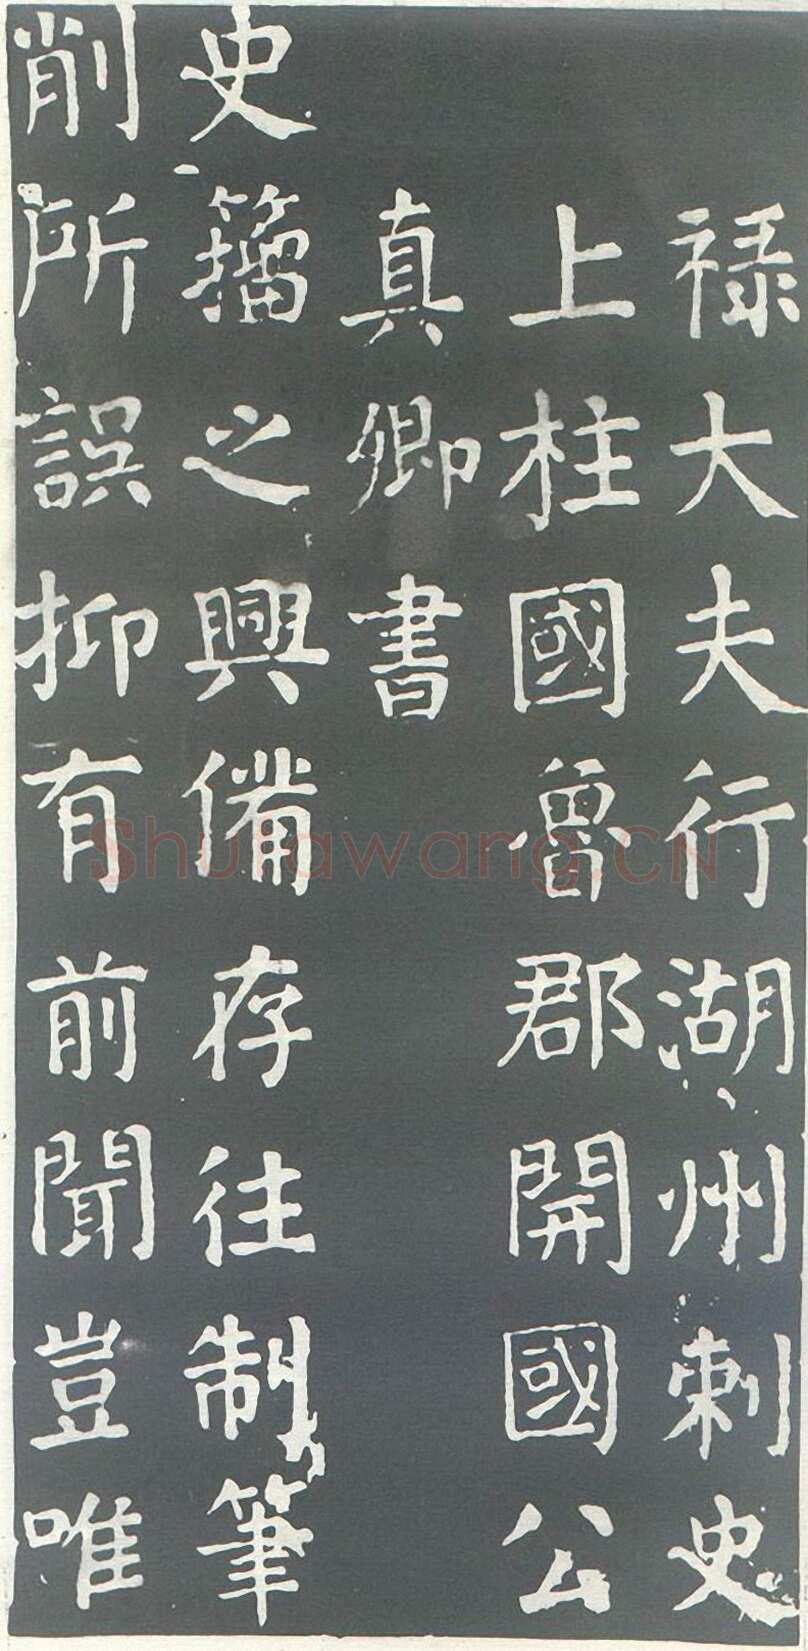 禄大夫行湖州刺史
上柱國魯郡開國公
真卿書
史籀之興備存往制筆
削所誤抑有前聞豈唯
Shufawang.CN